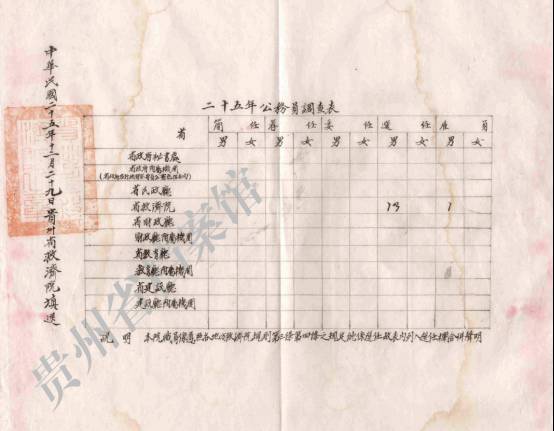 中華民國二十五年十二月二十九日貴州省救濟院填送
二十五年公務員調查表
省 簡任 荐任 委任 選任 雇員
男 女 男 女 男 女 男 女 男 女
省政府秘書處
省政府附屬機關
省民政廳
省救濟院 13 1
省財政廳
財政廳附屬機關
省教育廳
教育廳附屬機關
省建設廳
建設廳附屬機關
說明 本院職員係遵照各地方救濟院規則第三條第四條之規定純係選任故表內列入選任欄合併聲明
贵州省档案馆